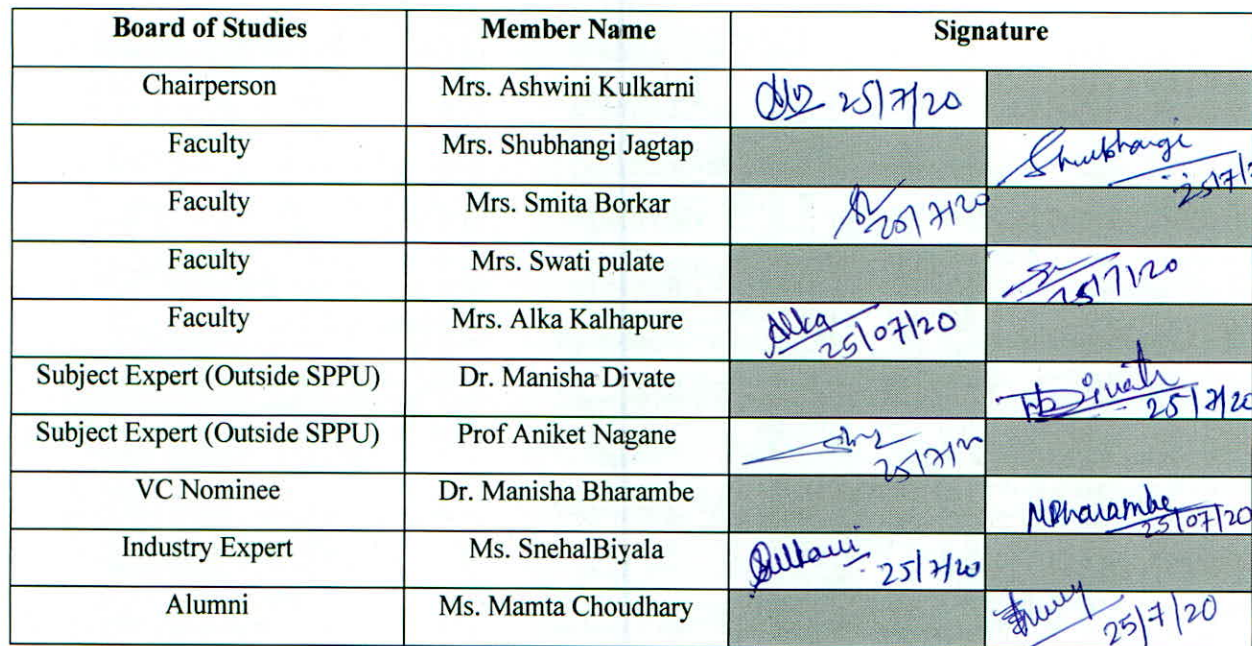 Board of Studies Member Name Signature
Chairperson Mrs. Ashwini Kulkarni 25/7/20
Faculty Mrs. Shubhangi Jagtap Shubhangi 25/7/2
Faculty Mrs. Smita Borkar 25/7/20
Faculty Mrs. Swati pulate 25/7/20
Faculty Mrs. Alka Kalhapure Alka 25/07/20
Subject Expert (Outside SPPU) Dr. Manisha Divate 25/7/20
Subject Expert (Outside SPPU) Prof Aniket Nagane 25/7/20
VC Nominee Dr. Manisha Bharambe MBharambe 25/07/20
Industry Expert Ms. SnehalBiyala 25/7/20
Alumni Ms. Mamta Choudhary 25/7/20